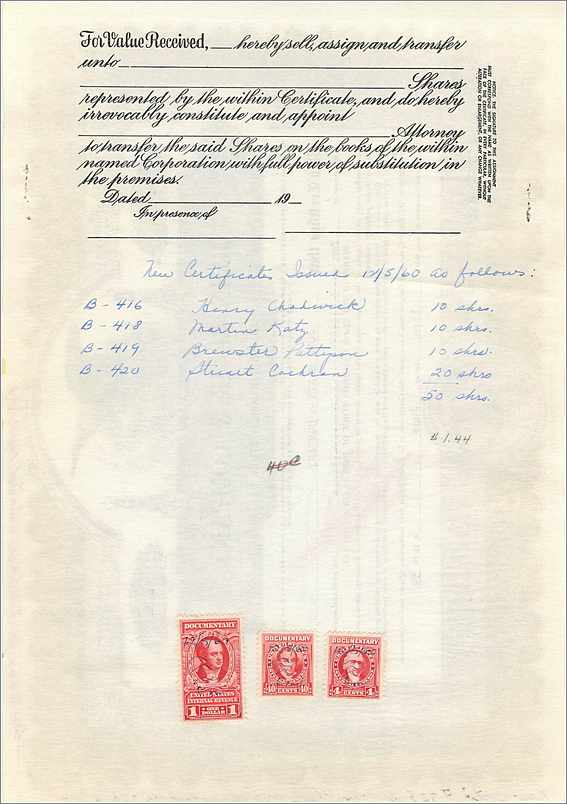 For Value Received, ___ hereby sell, assign, and transfer
unto
Shares
represented by the within Certificate, and do hereby
irrevocably constitute and appoint
Attorney
to transfer the said Shares on the books of the within
named Corporation, with full power of substitution in
the premises.
Dated 19
In presence of
NOTICE: THE SIGNATURE TO THIS ASSIGNMENT
MUST CORRESPOND WITH THE NAME AS WRITTEN UPON THE
FACE OF THE CERTIFICATE, IN EVERY PARTICULAR, WITHOUT
ALTERATION OR ENLARGEMENT, OR ANY CHANGE WHATEVER.
New Certificates Issued 12/5/60 as follows:
B-416 Henry Chadwick 10 shrs.
B-418 Martin Katz 10 shrs.
B-419 Brewster 10 shrs.
B-420 Stuart Cochran 20 shrs
50 shrs.
$1.44
40¢
DOCUMENTARY
UNITED STATES
INTERNAL REVENUE
1 ONE DOLLAR 1
DOCUMENTARY
40 CENTS 40
DOCUMENTARY
4 CENTS 4